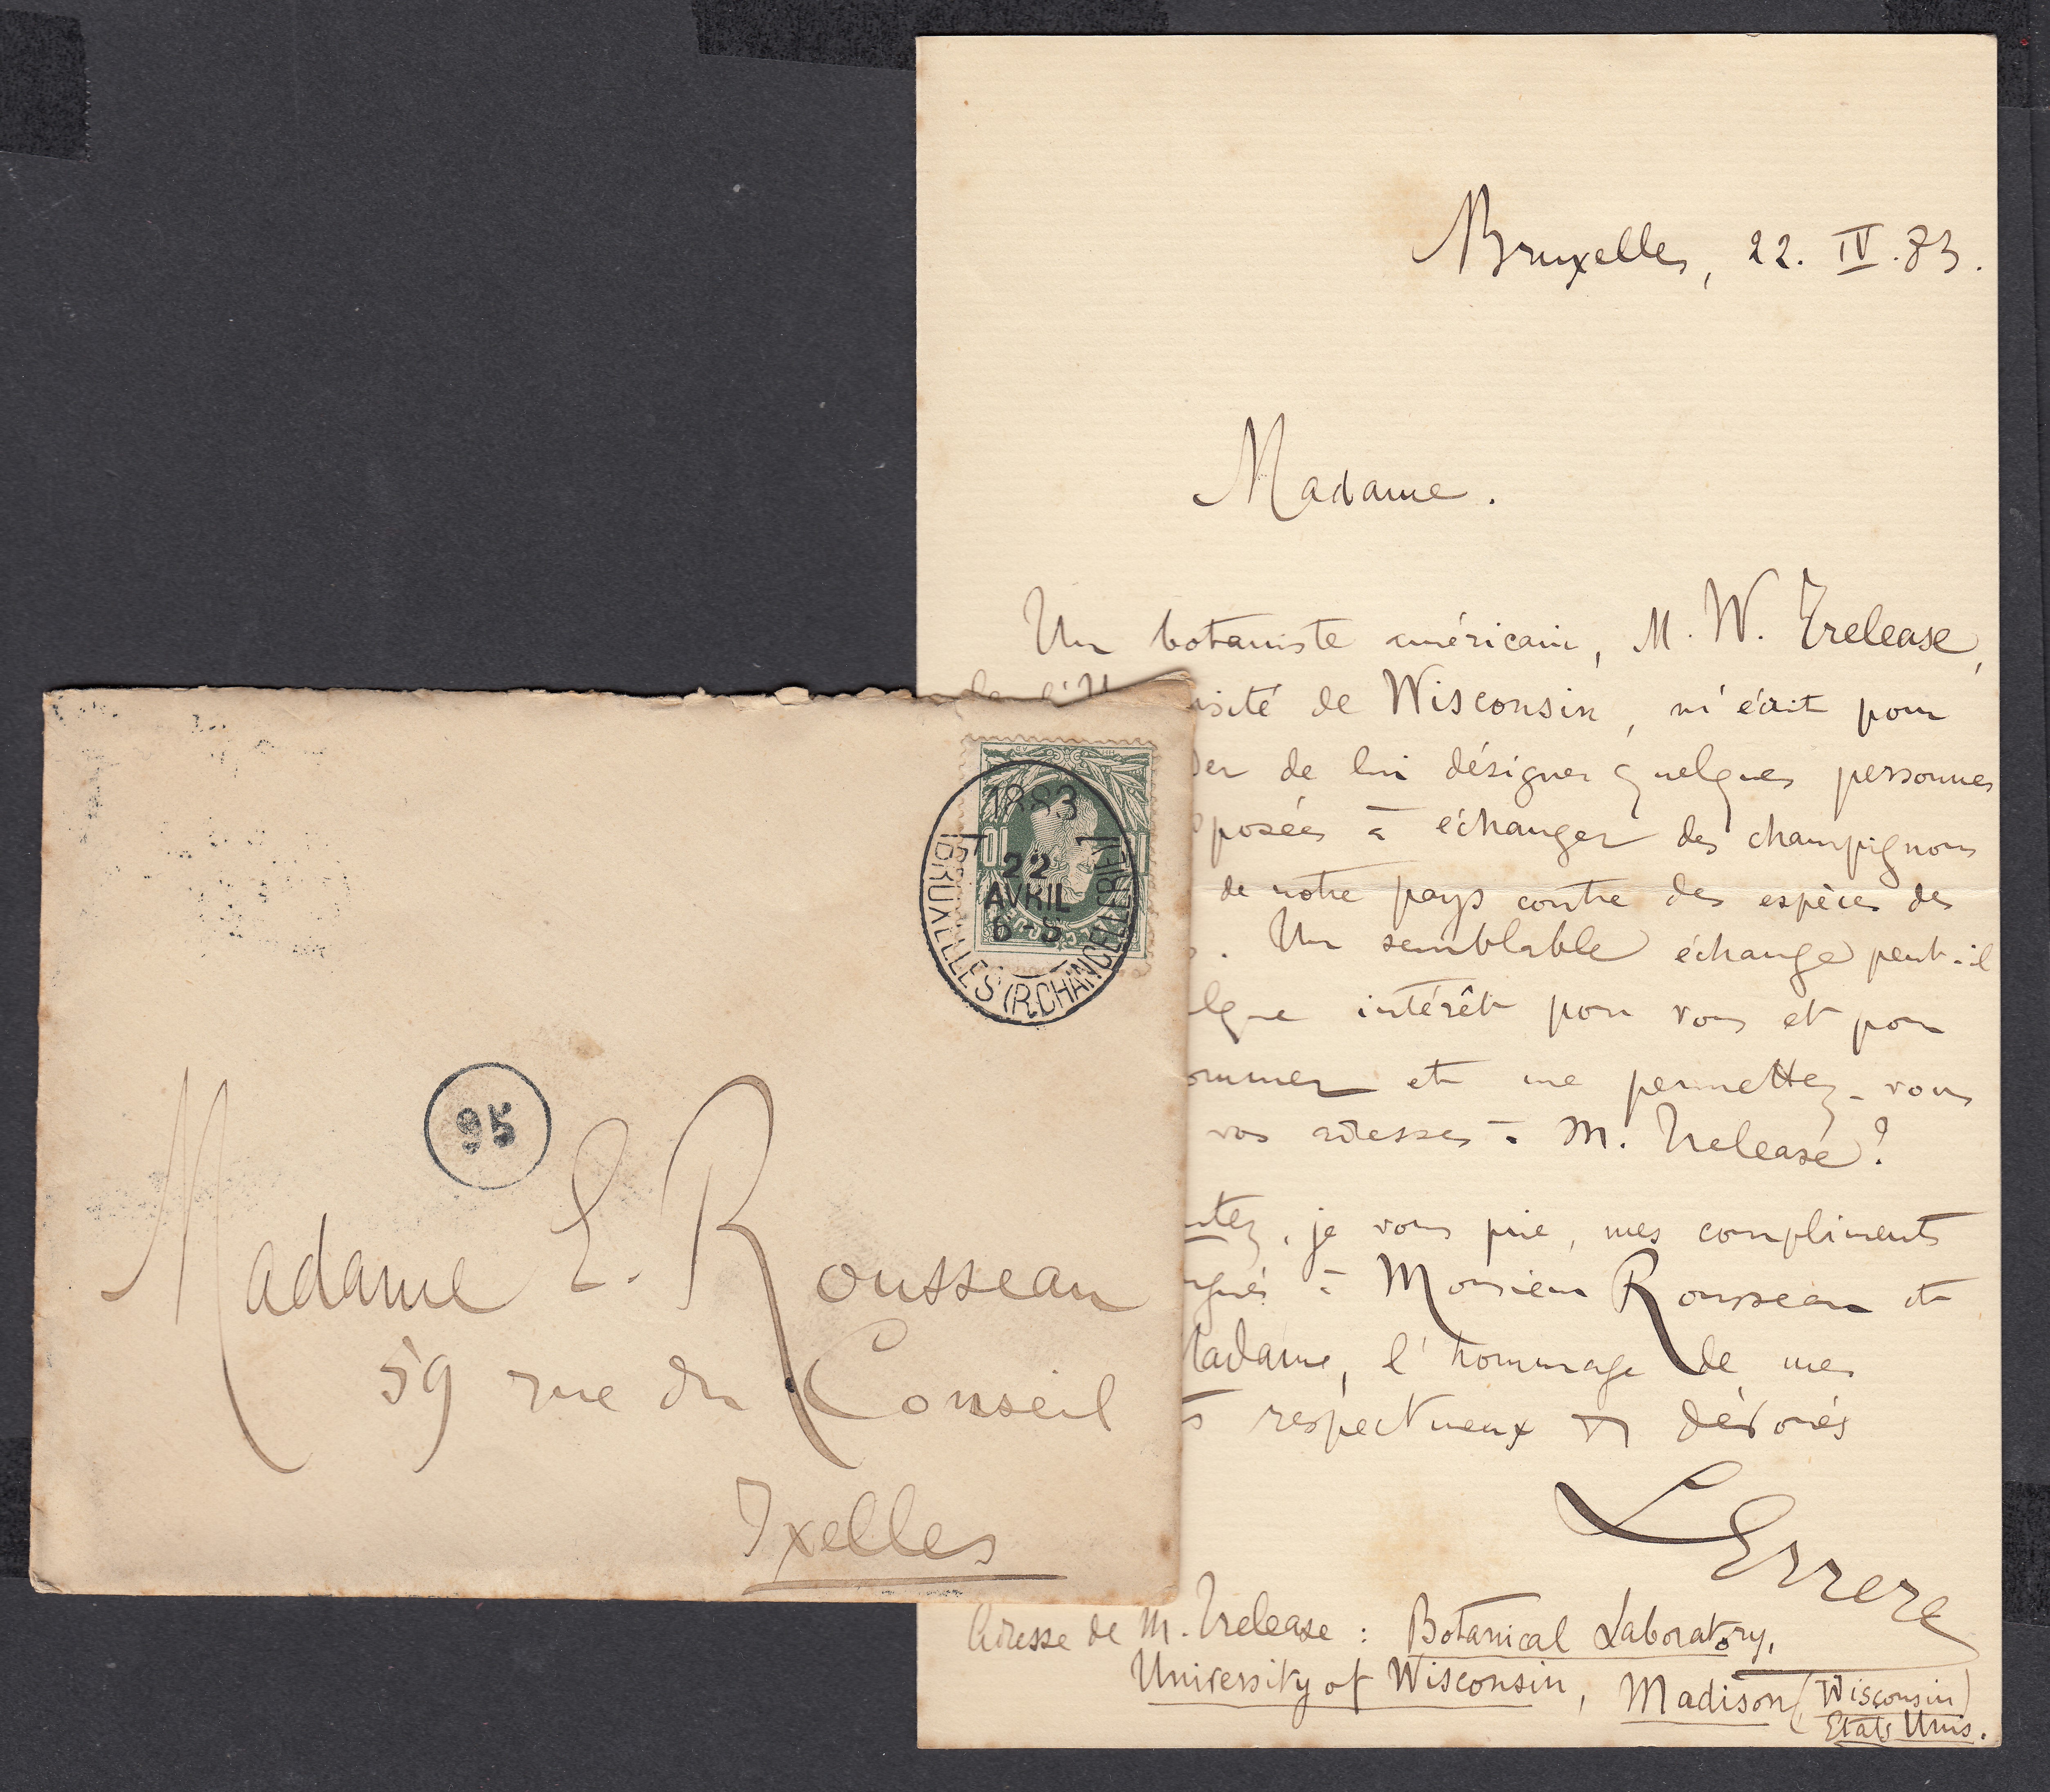 Bruxelles, 22. IV. 83.
Madame.
Un botaniste américain, M. W. Trelease,
de l'U
sité de Wisconsin, m'écrit pour
der de lui désigner quelques personnes
posées à échanger des champignons
de notre pays contre des espèces des
. Un semblable échange peut-il
lque intérêt pour vous et pour
ommer et me permettez-vous
vos adresses à M. Trelease?
ntez, je vous prie, mes compliments
ngués à Monsieur Rousseau et
Madame, l'hommage de mes
ts respectueux et dévoués
L Errera
Adresse de M. Trelease : Botanical Laboratory,
University of Wisconsin, Madison (Wisconsin)
Etats Unis.
1883
22
AVRIL
6-S
BRUXELLES (R. CHANCELLERIE)
10
95
Madame E. Rousseau
59 rue du Conseil
Ixelles